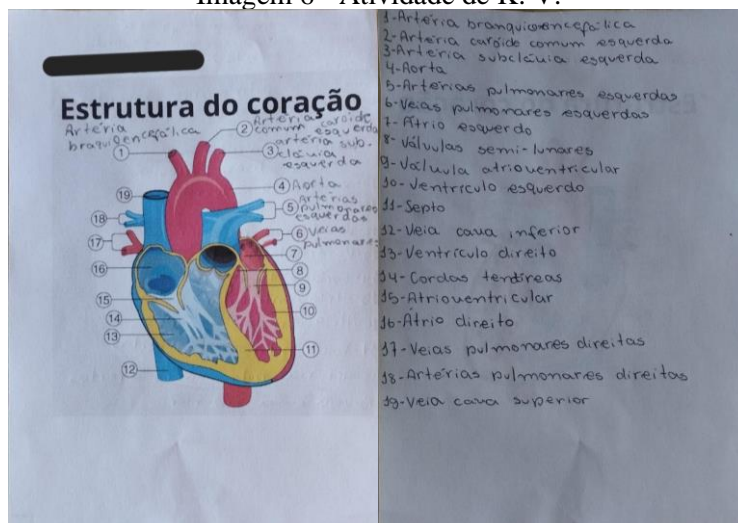 Imagem 6 - Atividade de K. V.
Estrutura do coração
Artéria
braquioencefálica
Artéria caroide
comum esquerda
artéria sub-
clávia
esquerda
Aorta
Artérias
pulmonares
esquerdas
Veias
pulmonares
1
2
3
4
5
6
7
8
9
10
11
12
13
14
15
16
17
18
19
1-Artéria branquioencefálica
2-Artéria caroide comum esquerda
3-Artéria subclávia esquerda
4-Aorta
5-Artérias pulmonares esquerdas
6-Veias pulmonares esquerdas
7-Átrio esquerdo
8-Válvulas semi-lunares
9-Válvula atrioventricular
10-Ventrículo esquerdo
11-Septo
12-Veia cava inferior
13-Ventrículo direito
14-Cordas tendíneas
15-Atrioventricular
16-Átrio direito
17-Veias pulmonares direitas
18-Artérias pulmonares direitas
19-Veia cava superior